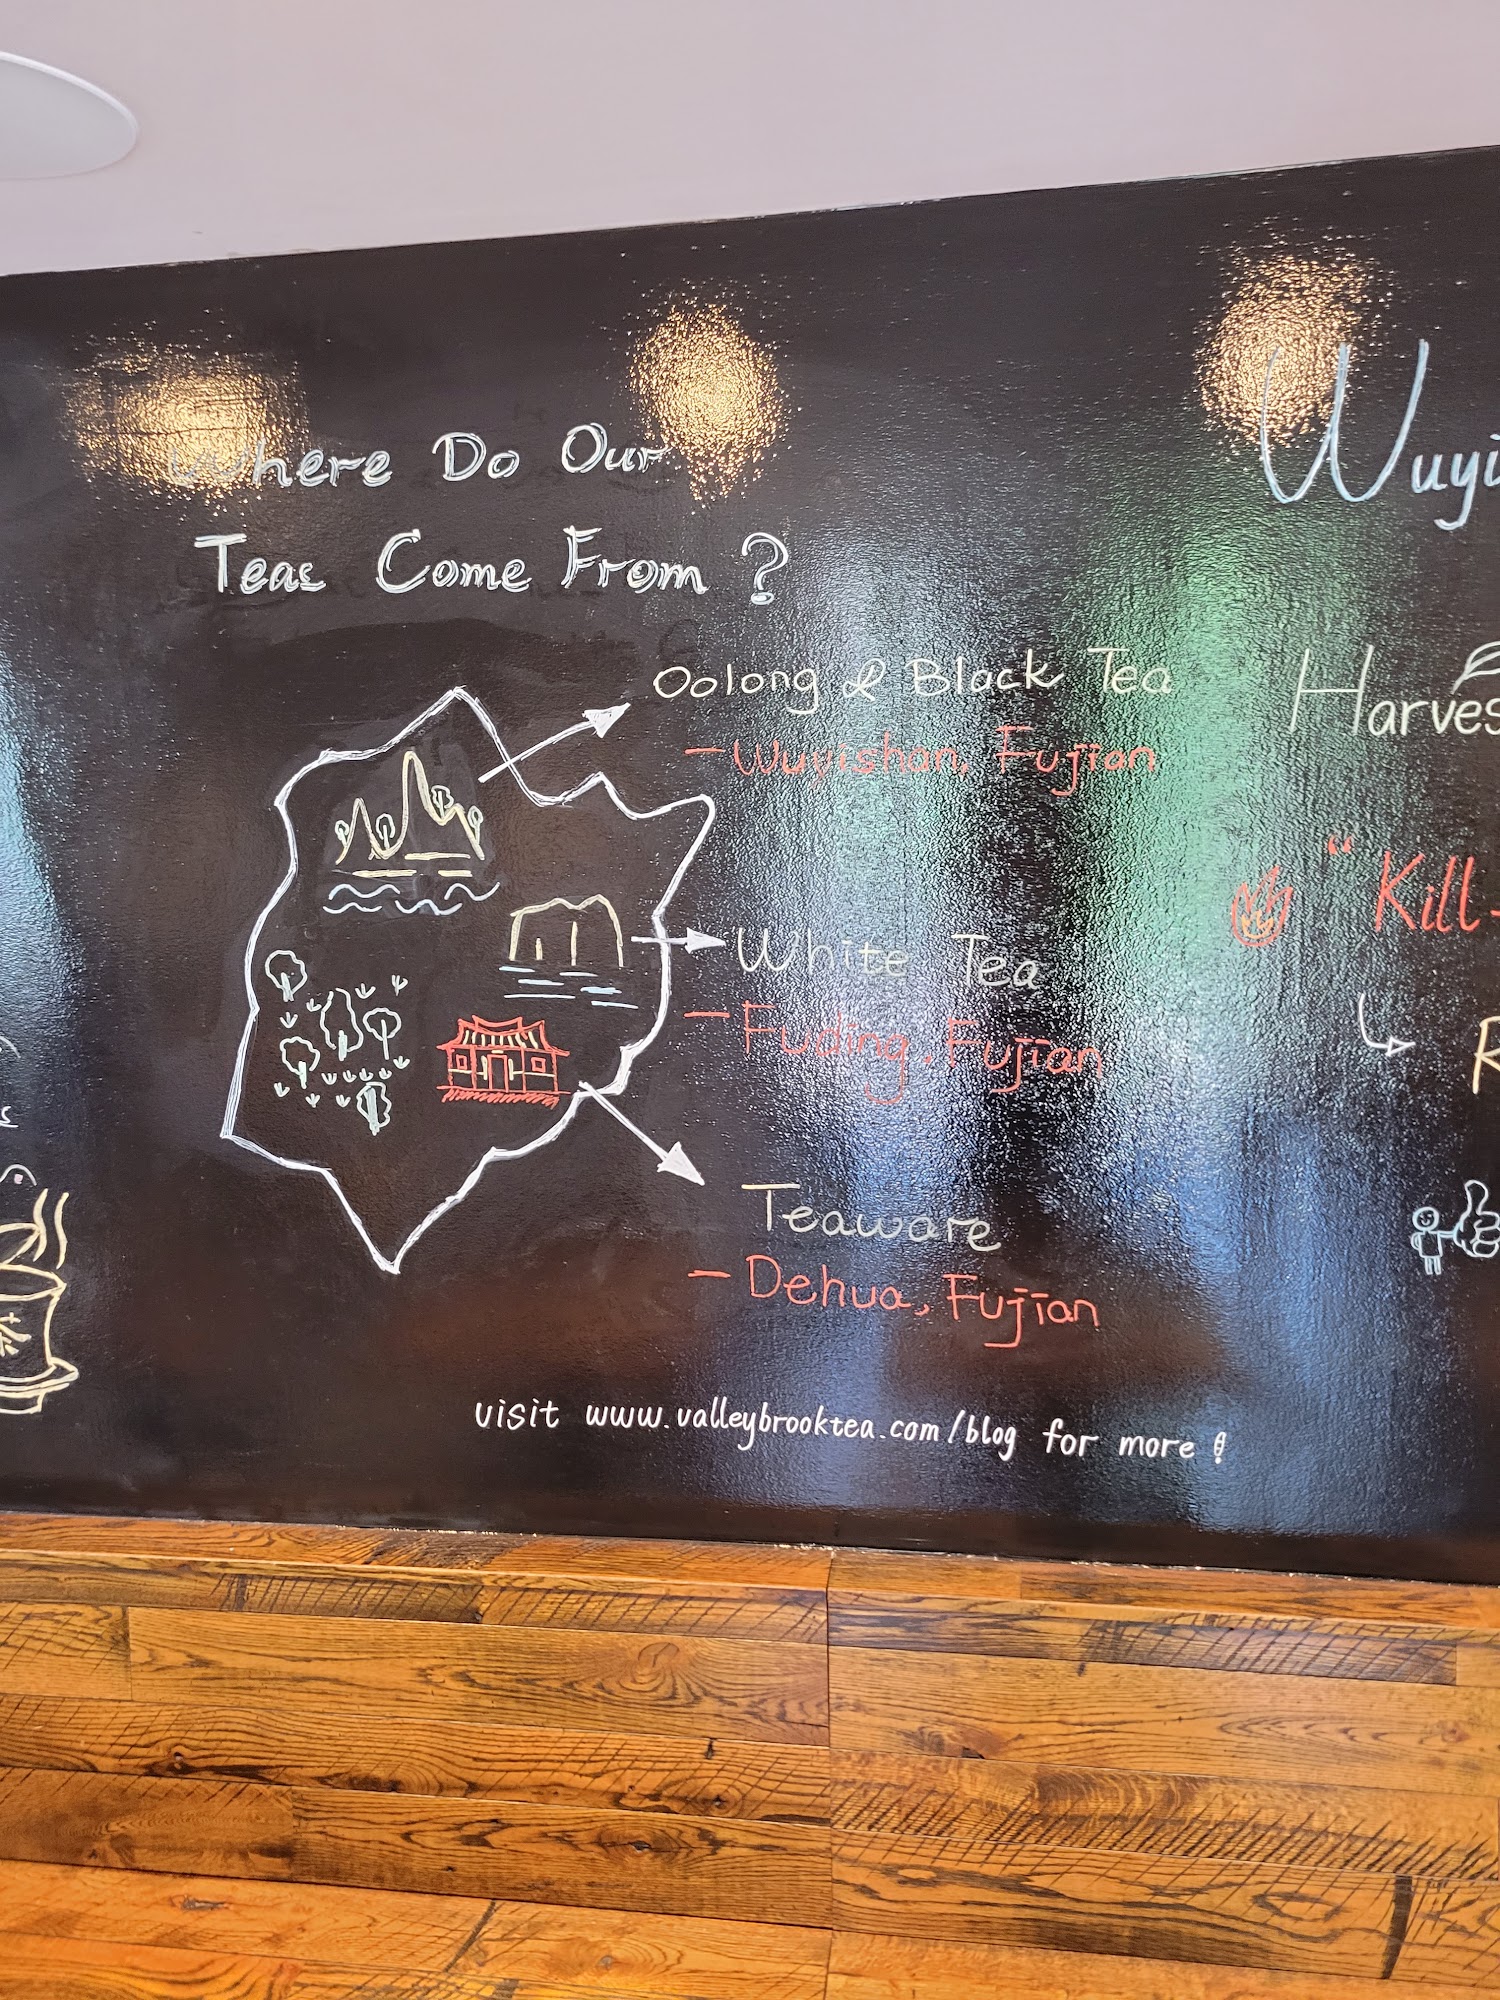 Where Do Our
Teas Come From ?
Oolong & Black Tea
- Wuyishan, Fujian
White Tea
- Fuding, Fujian
Teaware
- Dehua, Fujian
visit www.valleybrooktea.com/blog for more !
Wuyi
Harves
" Kill-
R
茶